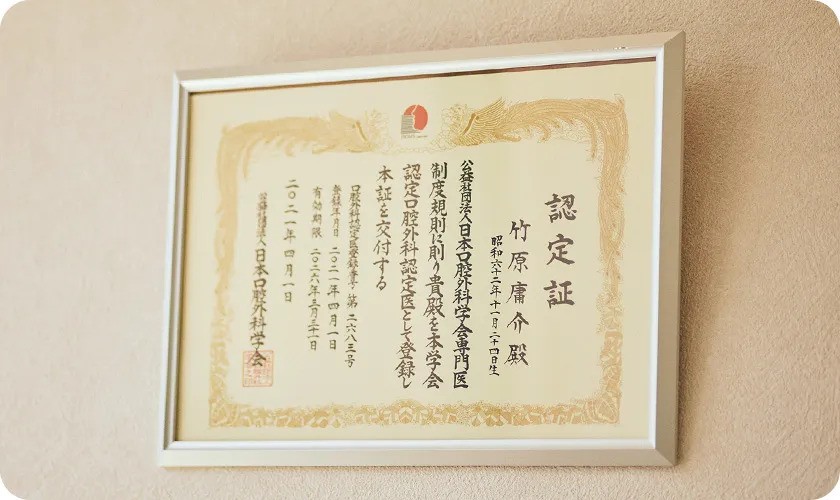 認定証
竹原庸介 殿
昭和六十二年 十一月二十四日生
公益社団法人日本口腔外科学会専門医
制度規則に則り貴殿を本学会
認定口腔外科認定医として登録し
本証を交付する
口腔外科認定医登録番号 第 二六八三号
登録年月日 二〇二一年四月一日
有効期限 二〇二六年三月三十一日
二〇二一年四月一日
公益社団法人日本口腔外科学会